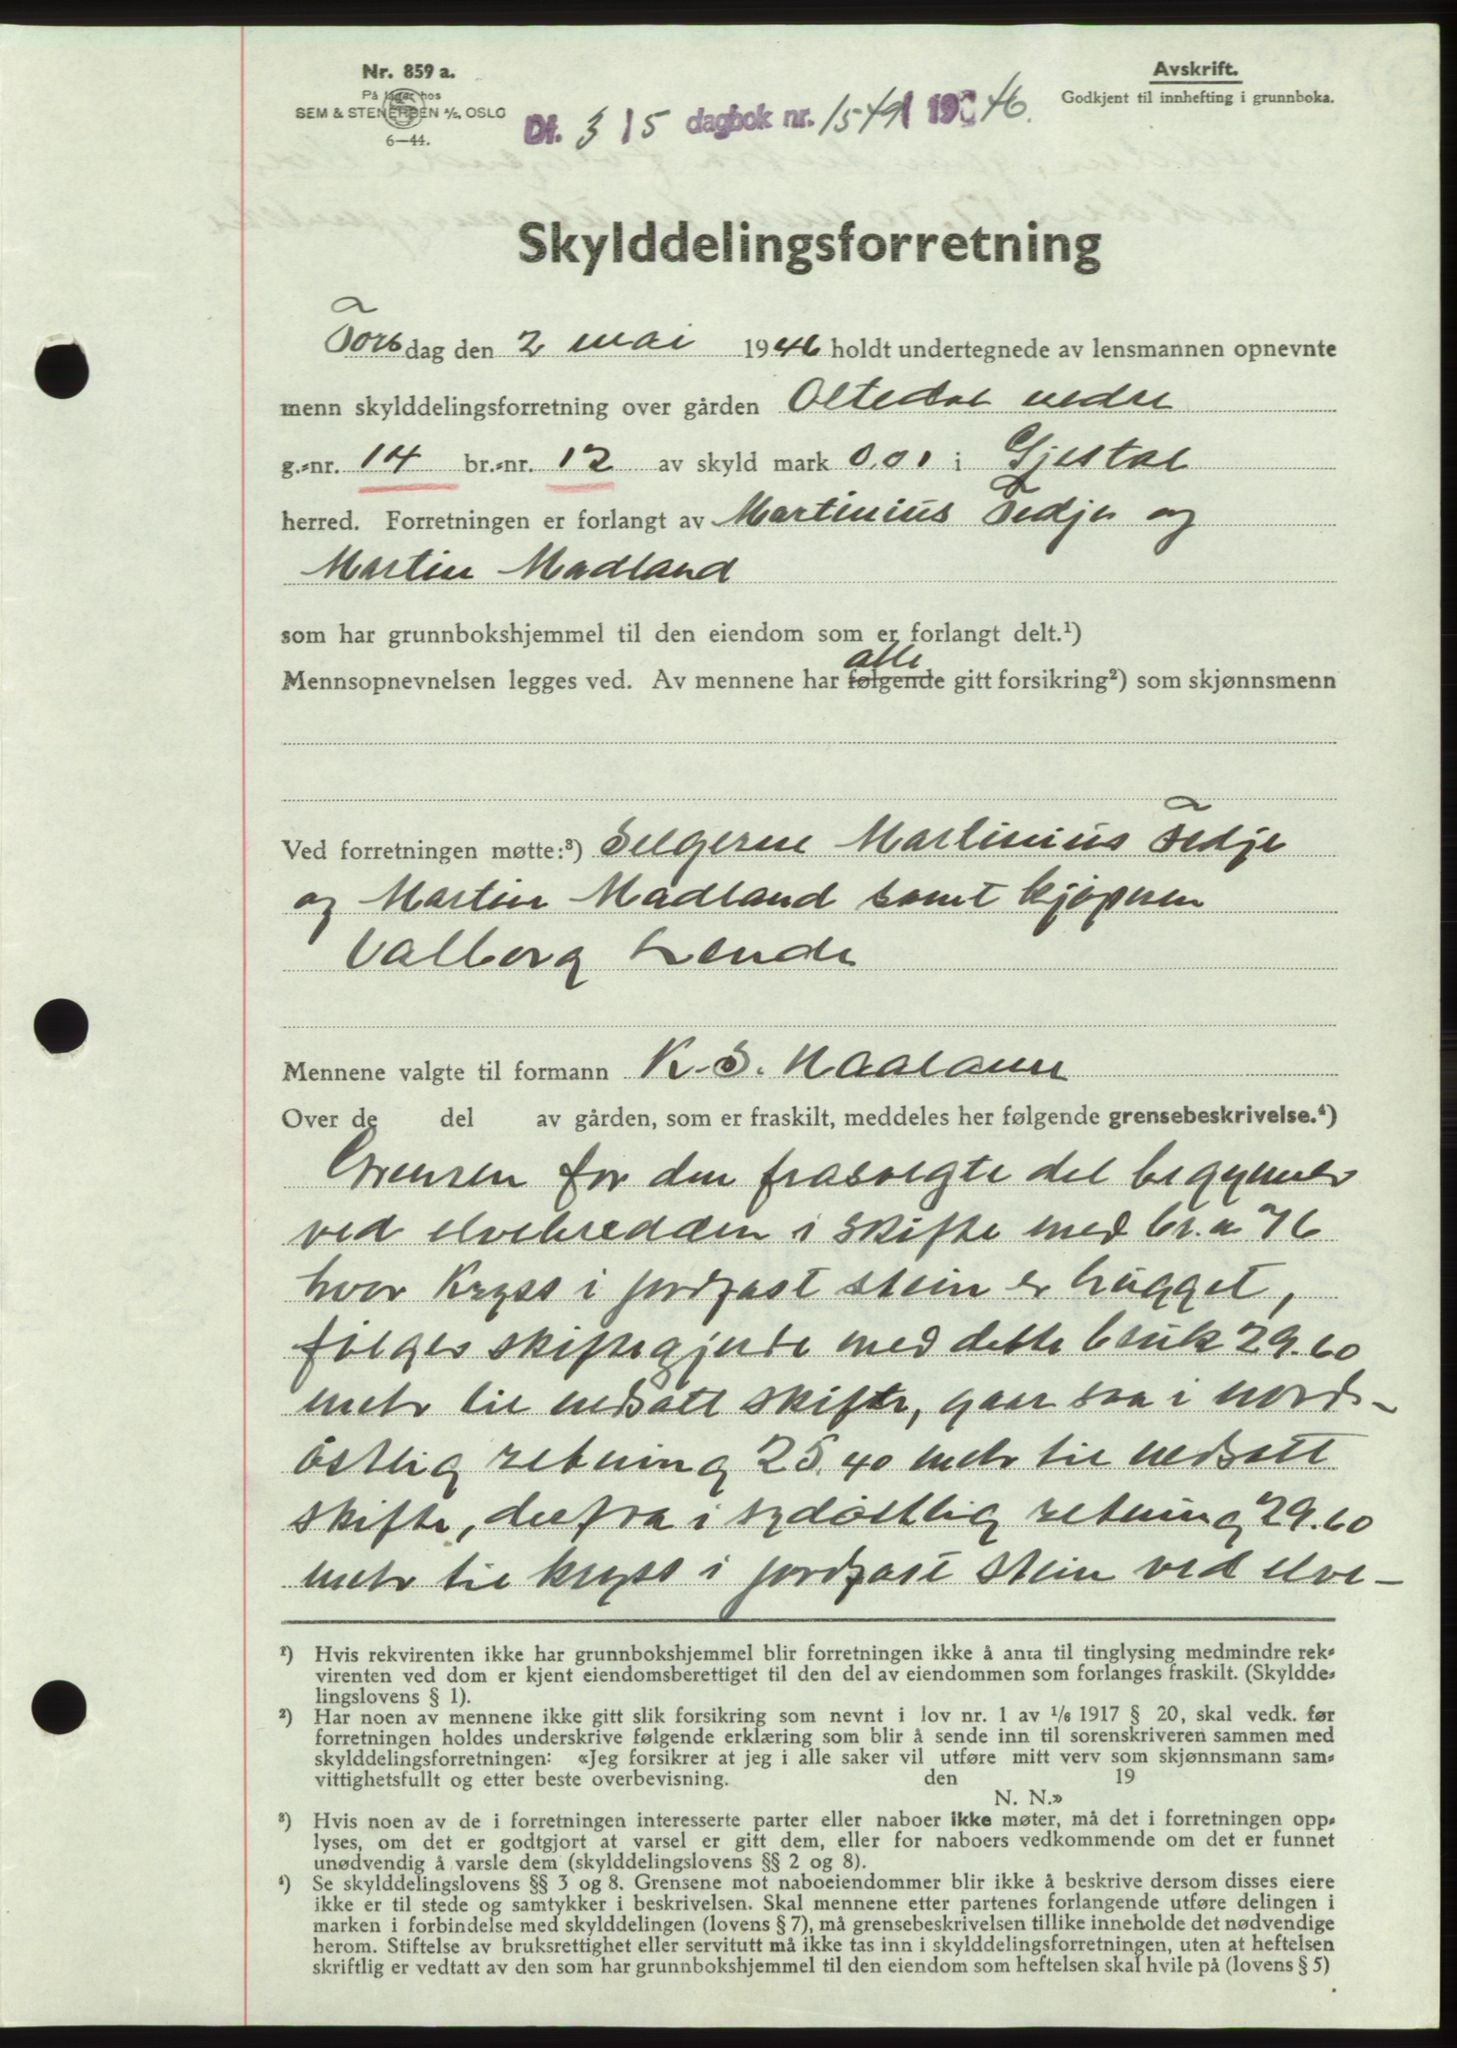 Nr. 859 a.
På lager hos
SEM & STENERSEN A/S, OSLO
6—44.
Avskrift.
Godkjent til innhefting i grunnboka.
Df. 3 / 5 dagbok nr. 1549 1946.
Skylddelingsforretning
Torsdag den 2 mai 1946 holdt undertegnede av lensmannen opnevnte
menn skylddelingsforretning over gården Oltedal nedre
g.-nr. 14 br.-nr. 12 av skyld mark 0,01 i Gjestal
herred. Forretningen er forlangt av Martinius Tedje og
Martin Madland
som har grunnbokshjemmel til den eiendom som er forlangt delt.¹)
alle
Mennsopnevnelsen legges ved. Av mennene har følgende gitt forsikring²) som skjønnsmenn
Ved forretningen møtte:³) Selgerne Martinius Tedje
og Martin Madland samt kjøperen
Valborg Lende
Mennene valgte til formann K. S. Maaland
Over de del av gården, som er fraskilt, meddeles her følgende grensebeskrivelse.⁴)
Grensen for den frasolgte del begynner
ved elvebredden i skifte med br. n 76
hvor Kryss i jordfast stein er hugget,
følger skiftegjerde med dette bruk 29.60
meter til nedsatt skifte, gaar saa i nord-
østlig retning 25.40 meter til nedsatt
skifte, derfra i sydøstlig retning 29.60
meter til kryss i jordfast stein ved elve-
¹) Hvis rekvirenten ikke har grunnbokshjemmel blir forretningen ikke å anta til tinglysing medmindre rek-
virenten ved dom er kjent eiendomsberettiget til den del av eiendommen som forlanges fraskilt. (Skyldde-
lingslovens § 1).
²) Har noen av mennene ikke gitt slik forsikring som nevnt i lov nr. 1 av 1/6 1917 § 20, skal vedk. før
forretningen holdes underskrive følgende erklæring som blir å sende inn til sorenskriveren sammen med
skylddelingsforretningen: «Jeg forsikrer at jeg i alle saker vil utføre mitt verv som skjønnsmann sam-
vittighetsfullt og etter beste overbevisning. den 19
N. N.»
³) Hvis noen av de i forretningen interesserte parter eller naboer ikke møter, må det i forretningen opp-
lyses, om det er godtgjort at varsel er gitt dem, eller for naboers vedkommende om det er funnet
unødvendig å varsle dem (skylddelingslovens §§ 2 og 8).
⁴) Se skylddelingslovens §§ 3 og 8. Grensene mot naboeiendommer blir ikke å beskrive dersom disses eiere
ikke er til stede og samtykker i beskrivelsen. Skal mennene etter partenes forlangende utføre delingen i
marken i forbindelse med skylddelingen (lovens § 7), må grensebeskrivelsen tillike inneholde det nødvendige
herom. Stiftelse av bruksrettighet eller servitutt må ikke tas inn i skylddelingsforretningen, uten at heftelsen
skriftlig er vedtatt av den som har grunnbokshjemmel til den eiendom som heftelsen skal hvile på (lovens § 5)